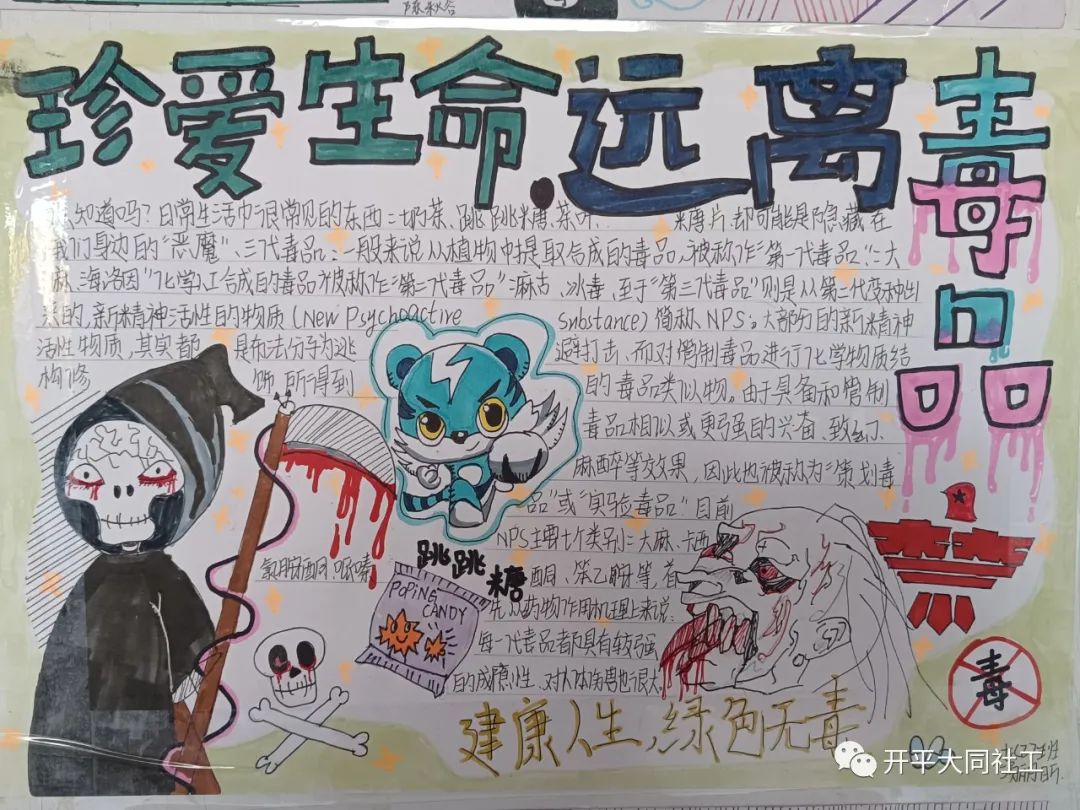 珍爱生命.远离毒品
知道吗?日常生活中很常见的东西:奶茶、跳跳糖、茶叶
糖片.却可能是隐藏在
我们身边的"恶魔".三代毒品:一般来说从植物中提取合成的毒品,被称作"第一代毒品":大
麻、海洛因"化学工合成的毒品被称作"第二代毒品":麻古、冰毒,至于"第三代毒品"则是从第二代变种出
来的,新精神活性的物质(New Psychoactive Substance)简称NPS:大部分的新精神
活性物质,其实都 是布法分子为逃 避打击、而对管制毒品进行化学物质结
构修 饰,所得到 的毒品类似物。由于具备和管制
毒品相似或更强的兴奋、致幻、
麻醉等效果,因此也被称为"策划毒
品"或"实验毒品"目前
NPS主要七个类别:大麻、卡西
氯胺酮、哌嗪 酮、苯乙胺等,首
先从药物作用机理上来说:
每一代毒品都具有较强
的成瘾性、对人体伤害也很大
跳跳糖
POPING CANDY
建康人生,绿色无毒
毒
开平大同社工